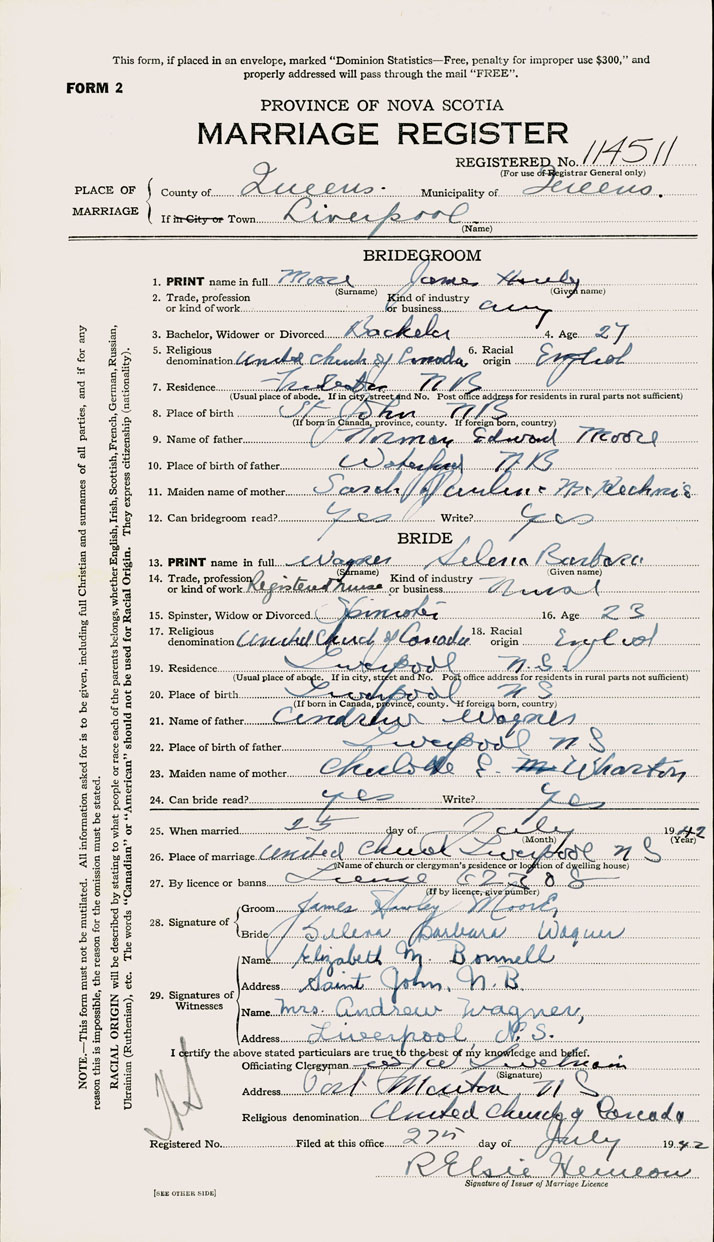 This form, if placed in an envelope, marked "Dominion Statistics—Free, penalty for improper use $300," and
properly addressed will pass through the mail "FREE".
FORM 2
PROVINCE OF NOVA SCOTIA
MARRIAGE REGISTER
REGISTERED No. 114511
(For use of Registrar General only)
PLACE OF MARRIAGE
County of Queens. Municipality of Queens.
If in City or Town Liverpool
(Name)
BRIDEGROOM
1. PRINT name in full Moore James
(Surname) (Given name)
2. Trade, profession or kind of work Kind of industry or business army
3. Bachelor, Widower or Divorced Bachelor 4. Age 27
5. Religious denomination United Church of Canada 6. Racial origin English
7. Residence N B
(Usual place of abode. If in city, street and No. Post office address for residents in rural parts not sufficient)
8. Place of birth St John N B
(If born in Canada, province, county. If foreign born, country)
9. Name of father Norman Edward Moore
10. Place of birth of father Waterford N B
11. Maiden name of mother Sarah Pauline McKechnie
12. Can bridegroom read? yes Write? yes
BRIDE
13. PRINT name in full Wagner Selena Barbara
(Surname) (Given name)
14. Trade, profession or kind of work Registered nurse Kind of industry or business
15. Spinster, Widow or Divorced Spinster 16. Age 23
17. Religious denomination United Church of Canada 18. Racial origin English
19. Residence Liverpool N.S.
(Usual place of abode. If in city, street and No. Post office address for residents in rural parts not sufficient)
20. Place of birth Liverpool N S
(If born in Canada, province, county. If foreign born, country)
21. Name of father Andrew Wagner
22. Place of birth of father Liverpool N S
23. Maiden name of mother Charlotte E. Wharton
24. Can bride read? yes Write? yes
25. When married 25 day of July 1942
(Month) (Year)
26. Place of marriage United Church Liverpool N S
(Name of church or clergyman's residence or location of dwelling house)
27. By licence or banns License 62308
(If by licence, give number)
28. Signature of
Groom James Hawley Moore,
Bride Selena Barbara Wagner
29. Signatures of Witnesses
Name Elizabeth M. Bonnell
Address Saint John, N.B.
Name Mrs. Andrew Wagner,
Address Liverpool, N.S.
I certify the above stated particulars are true to the best of my knowledge and belief.
Officiating Clergyman
(Signature)
Address Port Mouton N S
Religious denomination United Church of Canada
Registered No. Filed at this office 27th day of July 1942
R Elsie Hemeon
Signature of Issuer of Marriage Licence
[SEE OTHER SIDE]
NOTE.—This form must not be mutilated. All information asked for is to be given, including full Christian and surnames of all parties, and if for any
reason this is impossible, the reason for the omission must be stated.
RACIAL ORIGIN will be described by stating to what people or race each of the parents belongs, whether English, Irish, Scottish, French, German, Russian,
Ukrainian (Ruthenian), etc. The words "Canadian" or "American" should not be used for Racial Origin. They express citizenship (nationality).